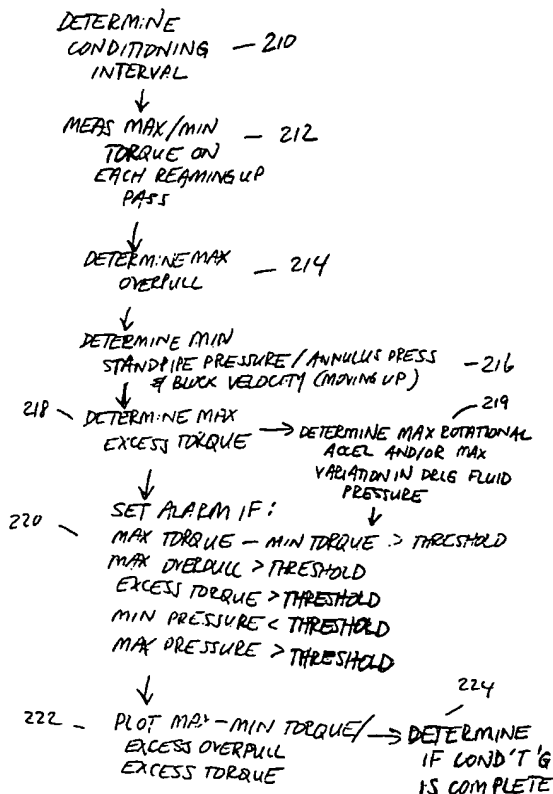 DETERMINE
CONDITIONING — 210
INTERVAL
MEAS MAX/MIN — 212
TORQUE ON
EACH REAMING UP
PASS
DETERMINE MAX — 214
OVERPULL
DETERMINE MIN
STANDPIPE PRESSURE / ANNULUS PRESS — 216
& BLOCK VELOCITY (MOVING UP)
218 DETERMINE MAX
EXCESS TORQUE
219
DETERMINE MAX ROTATIONAL
ACCEL AND/OR MAX
VARIATION IN DRLG FLUID
PRESSURE
220
SET ALARM IF:
MAX TORQUE — MIN TORQUE > THRESHOLD
MAX OVERPULL > THRESHOLD
EXCESS TORQUE > THRESHOLD
MIN PRESSURE < THRESHOLD
MAX PRESSURE > THRESHOLD
222 — PLOT MAX — MIN TORQUE/
EXCESS OVERPULL
EXCESS TORQUE
224
DETERMINE
IF COND'T'G
IS COMPLETE